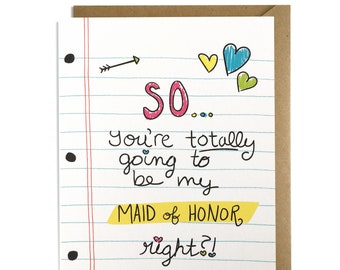 SO...
you're totally
going to
be my
MAID of HONOR
right?!